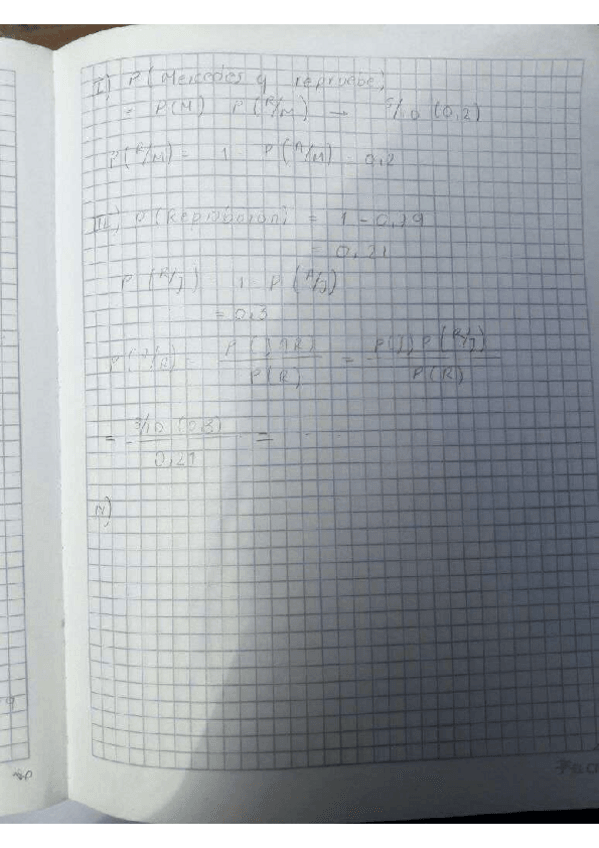 II) P(Mercedes y repruebe)
= P(M) P(R/M) = 5/10 (0,2)
P(R/M) = 1 P(A/M) 0,2
III) P(Reprobacion) = 1 - 0,79
= 0,21
P(R/J) 1 P(A/J)
= 0,3
P(J/R) = P(J∩R) / P(R) = P(J) P(R/J) / P(R)
= 3/10 (0,3) / 0,21 =
IV)